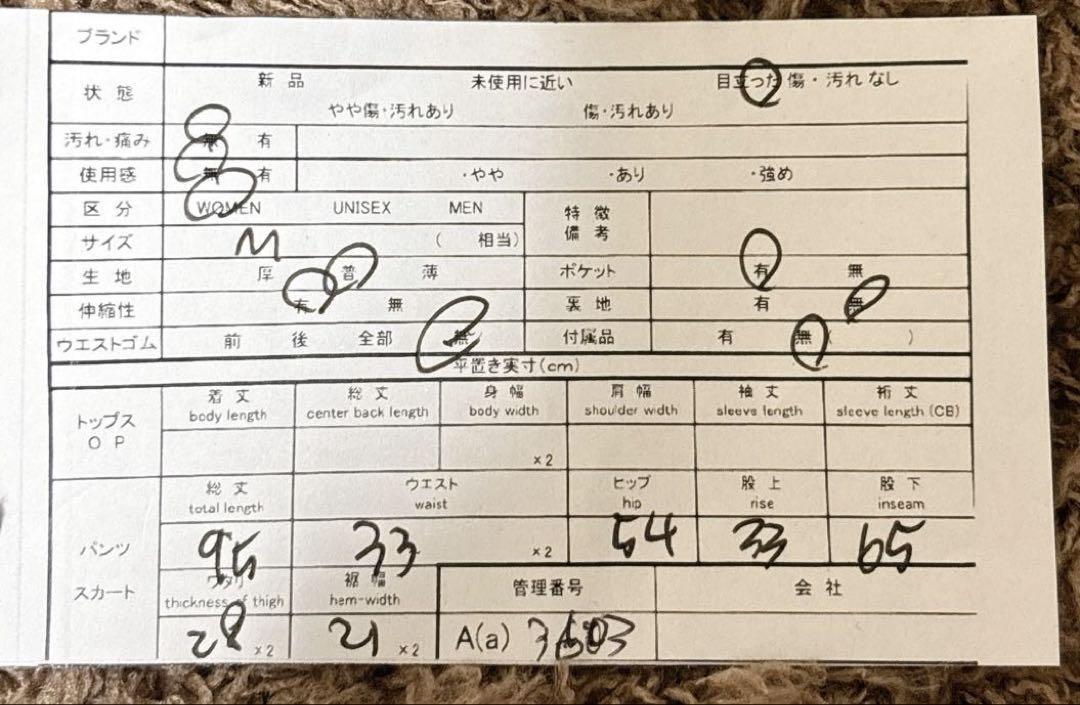 ブランド
状態 新品 未使用に近い 目立った傷・汚れなし
やや傷・汚れあり 傷・汚れあり
汚れ・痛み 無 有
使用感 無 有 ・やや ・あり ・強め
区分 WOMEN UNISEX MEN 特徴備考
サイズ M ( 相当)
生地 厚 普 薄 ポケット 有 無
伸縮性 有 無 裏地 有 無
ウエストゴム 前 後 全部 無 付属品 有 無( )
平置き実寸(cm)
トップス OP 着丈 総丈 身幅 肩幅 袖丈 裄丈
body length center back length body width shoulder width sleeve length sleeve length (CB)
×2
パンツ スカート 総丈 ウエスト ヒップ 股上 股下
total length waist hip rise inseam
95 33 ×2 54 33 65
ワタリ 裾幅 管理番号 会社
thickness of thigh hem-width
28 ×2 21 ×2 A(a)